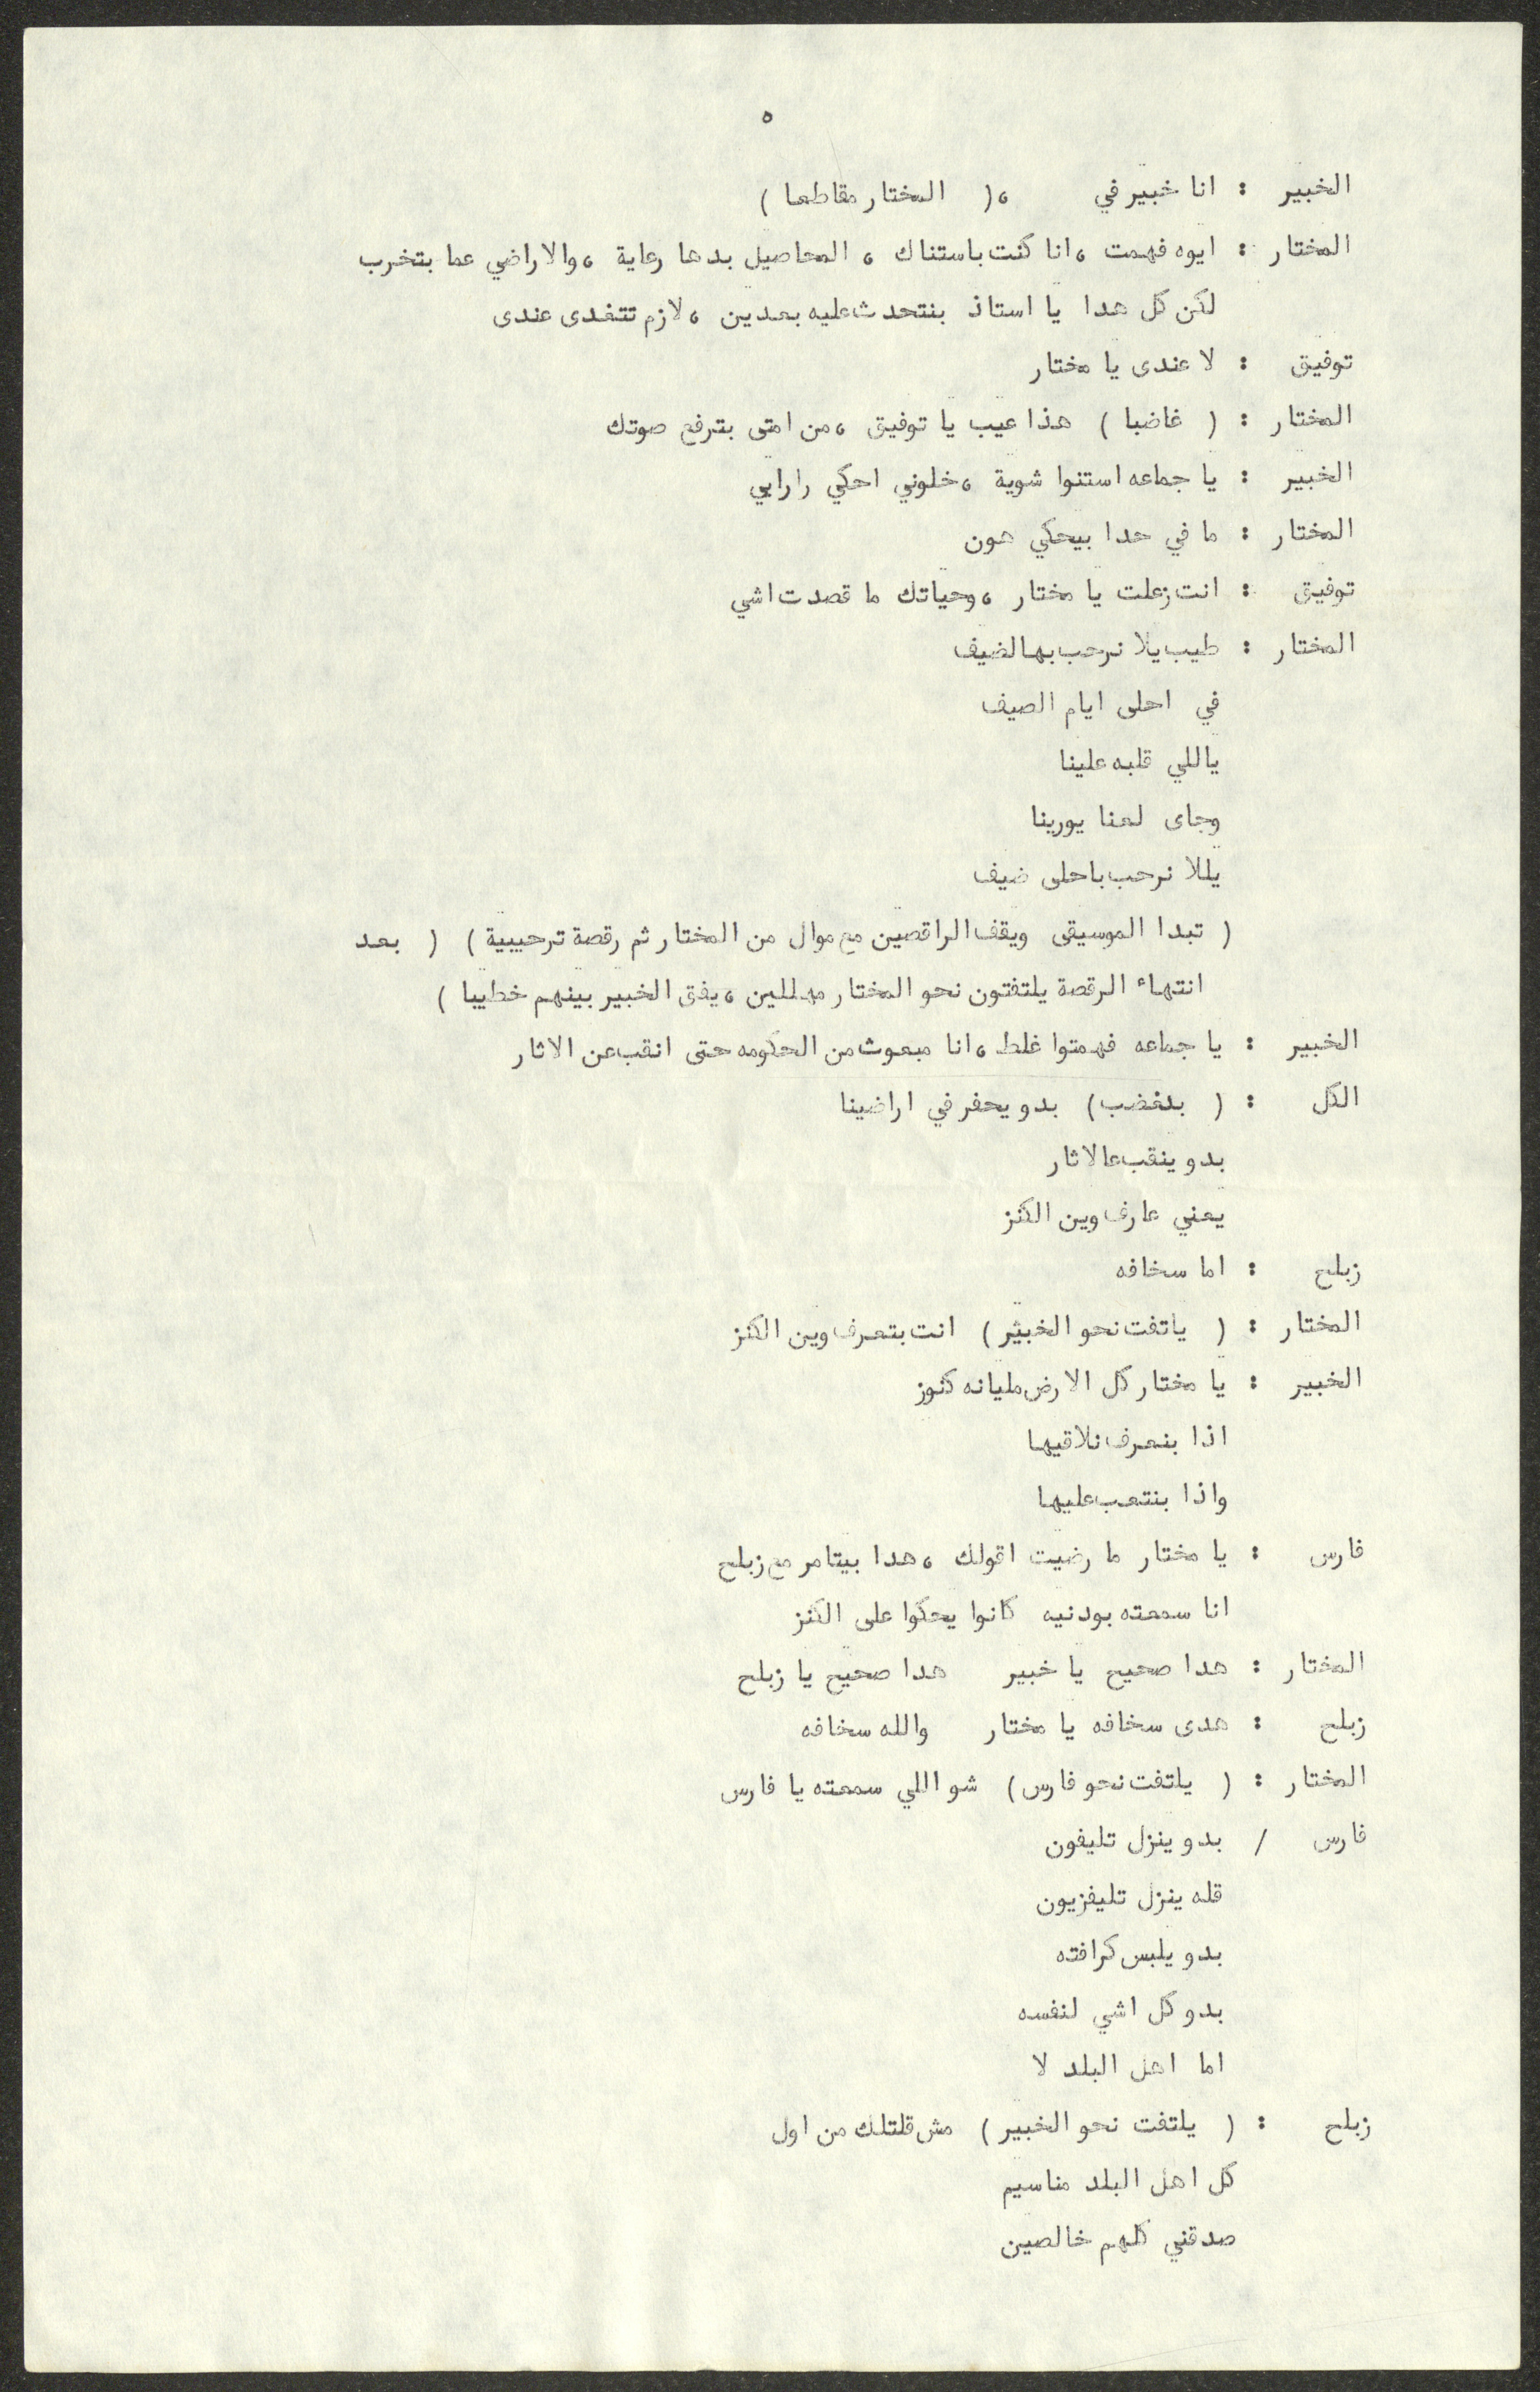 ٥
الخبير : انا خبير في ،( المختار مقاطعا )
المختار : ايوه فهمت ، انا كنت باستناك ، المحاصيل بدها رعاية ، والاراضي عما بتخرب
لكن كل هدا يا استاذ بنتحدث عليه بعدين ، لازم تتغدى عندى
توفيق : لا عندى يا مختار
المختار : ( غاضبا ) هذا عيب يا توفيق ، من امتى بترفع صوتك
الخبير : يا جماعه استنوا شوية ، خلوني احكي رارايي
المختار : ما في حدا بيحكي هون
توفيق : انت زعلت يا مختار ، وحياتك ما قصدت اشي
المختار : طيب يلا نرحب بهالضيف
في احلى ايام الصيف
ياللي قلبه علينا
وجاى لعنا يورينا
يللا نرحب باحلى ضيف
( تبدا الموسيقى ويقف الراقصين مع موال من المختار ثم رقصة ترحيبية ) ( بعد
انتهاء الرقصة يلتفتون نحو المختار مهللين ، يفق الخبير بينهم خطيبا )
الخبير : يا جماعه فهمتوا غلط ، انا مبعوث من الحكومه حتى انقب عن الاثار
الكل : ( بغضب ) بدو يحفر في اراضينا
بدو ينقب عالاثار
يعني عارف وين الكنز
زبلح : اما سخافه
المختار : ( ياتفت نحو الخبير ) انت بتعرف وين الكنز
الخبير : يا مختار كل الارض مليانه كنوز
اذا بنعرف نلاقيها
واذا بنتعب عليها
فارس : يا مختار ما رضيت اقولك ، هدا بيتامر مع زبلح
انا سمعته بودنيه كانوا يحكوا على الكنز
المختار : هدا صحيح يا خبير هدا صحيح يا زبلح
زبلح : هدى سخافه يا مختار والله سخافه
المختار : ( يلتفت نحو فارس ) شو اللي سمعته يا فارس
فارس / بدو ينزل تليفون
قله ينزل تليفزيون
بدو يلبس كرافته
بدو كل اشي لنفسه
اما اهل البلد لا
زبلح : ( يلتفت نحو الخبير ) مش قلتلك من اول
كل اهل البلد مناسيم
صدقني كلهم خالصين